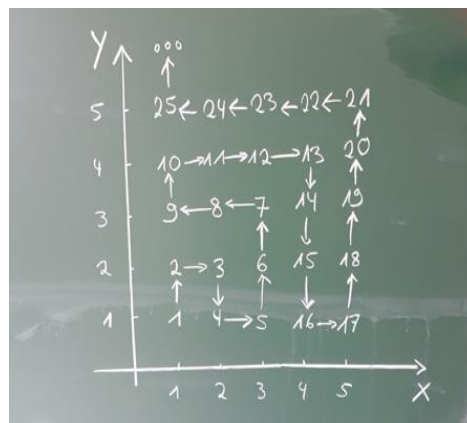 Y ooo
5 25←24←23←22←21
4 10→11→12→13 20
3 9←8←7 14 19
2 2→3 6 15 18
1 1 4→5 16→17
1 2 3 4 5 X